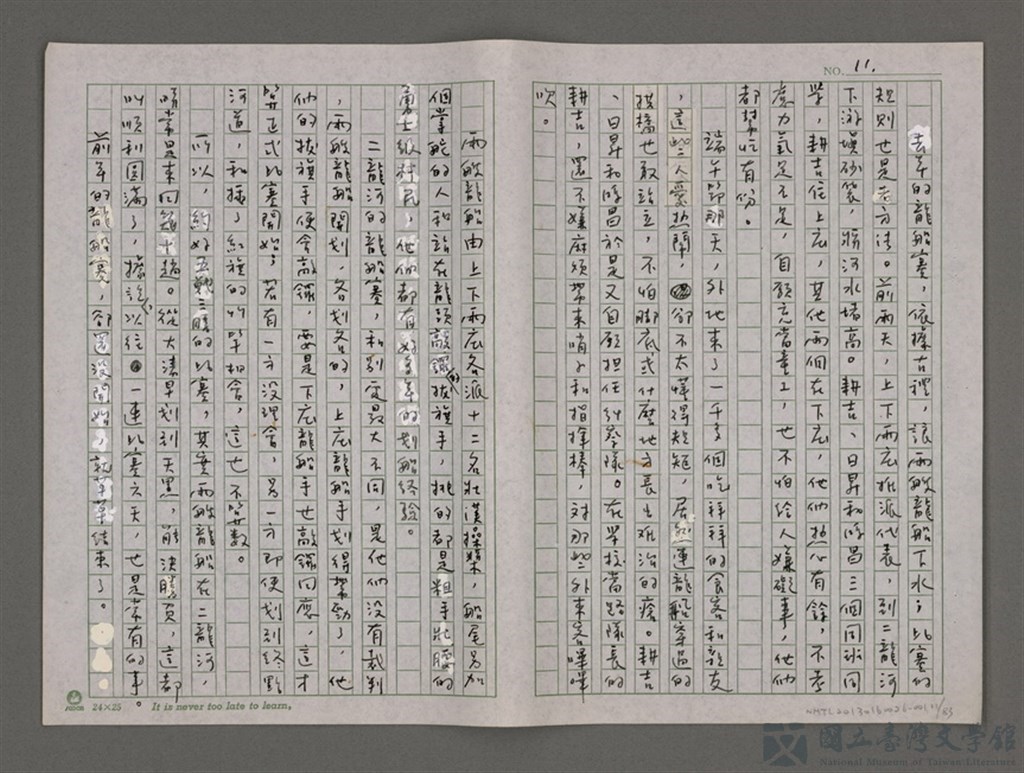 NO. 11.
去年的龍船賽，依據古禮，讓兩艘龍船下水；比賽的
規則也是老方法。前兩天，上下兩庄推派代表，到二龍河
下游堤砂袋，將河水堵高。耕吉、日昇和時昌三個同班同
學，耕吉住上庄，其他兩個在下庄，他們熱心有餘，不考
慮力氣足不足，自願充當童工，也不怕給人嫌礙事，他們
都幫忙有份。
端午節那天，外地來了一千多個吃拜拜的食客和親友
，這些人愛熱鬧，卻不太懂得規矩，居然連龍船穿過的
拱橋也敢站立，不怕腳底或什麼地方長出難治的瘡。耕吉
、日昇和時昌於是又自願擔任糾察隊。在學校當路隊長的
耕吉，還不嫌麻煩帶來哨子和指揮棒，對那些外來客嗶嗶
吹。
兩艘龍船由上下兩庄各派十二名壯漢操槳，船尾另加
個掌舵的人和站在龍頭敲鑼的拔旗手，挑的都是粗手壯腰的
勇士級村民，他們都有好多年的划船經驗。
二龍河的龍船賽，和別處最大不同，是他們沒有裁判
，兩艘龍船開划，各划各的，上庄龍船手划得帶勁了，他
們的拔旗手便會敲鑼，要是下庄龍船手也敲鑼回應，這才
算正式比賽開始；若有一方沒理會，另一方即便划到終點
河道，和拔了紅旗的竹竿相會，這也不算數。
所以，約好五戰三勝的比賽，其實兩艘龍船在二龍河，
時常是來回划十趟。從大清早划到天黑，能決勝負，這都
叫順利圓滿了，據說以往，一連比賽六天，也是常有的事。
前年的龍船賽，卻還沒開始，就草草結束了。
24×25 It is never too late to learn.
NMTL20130130026-0011/53
國立臺灣文學館
National Museum of Taiwan Literature